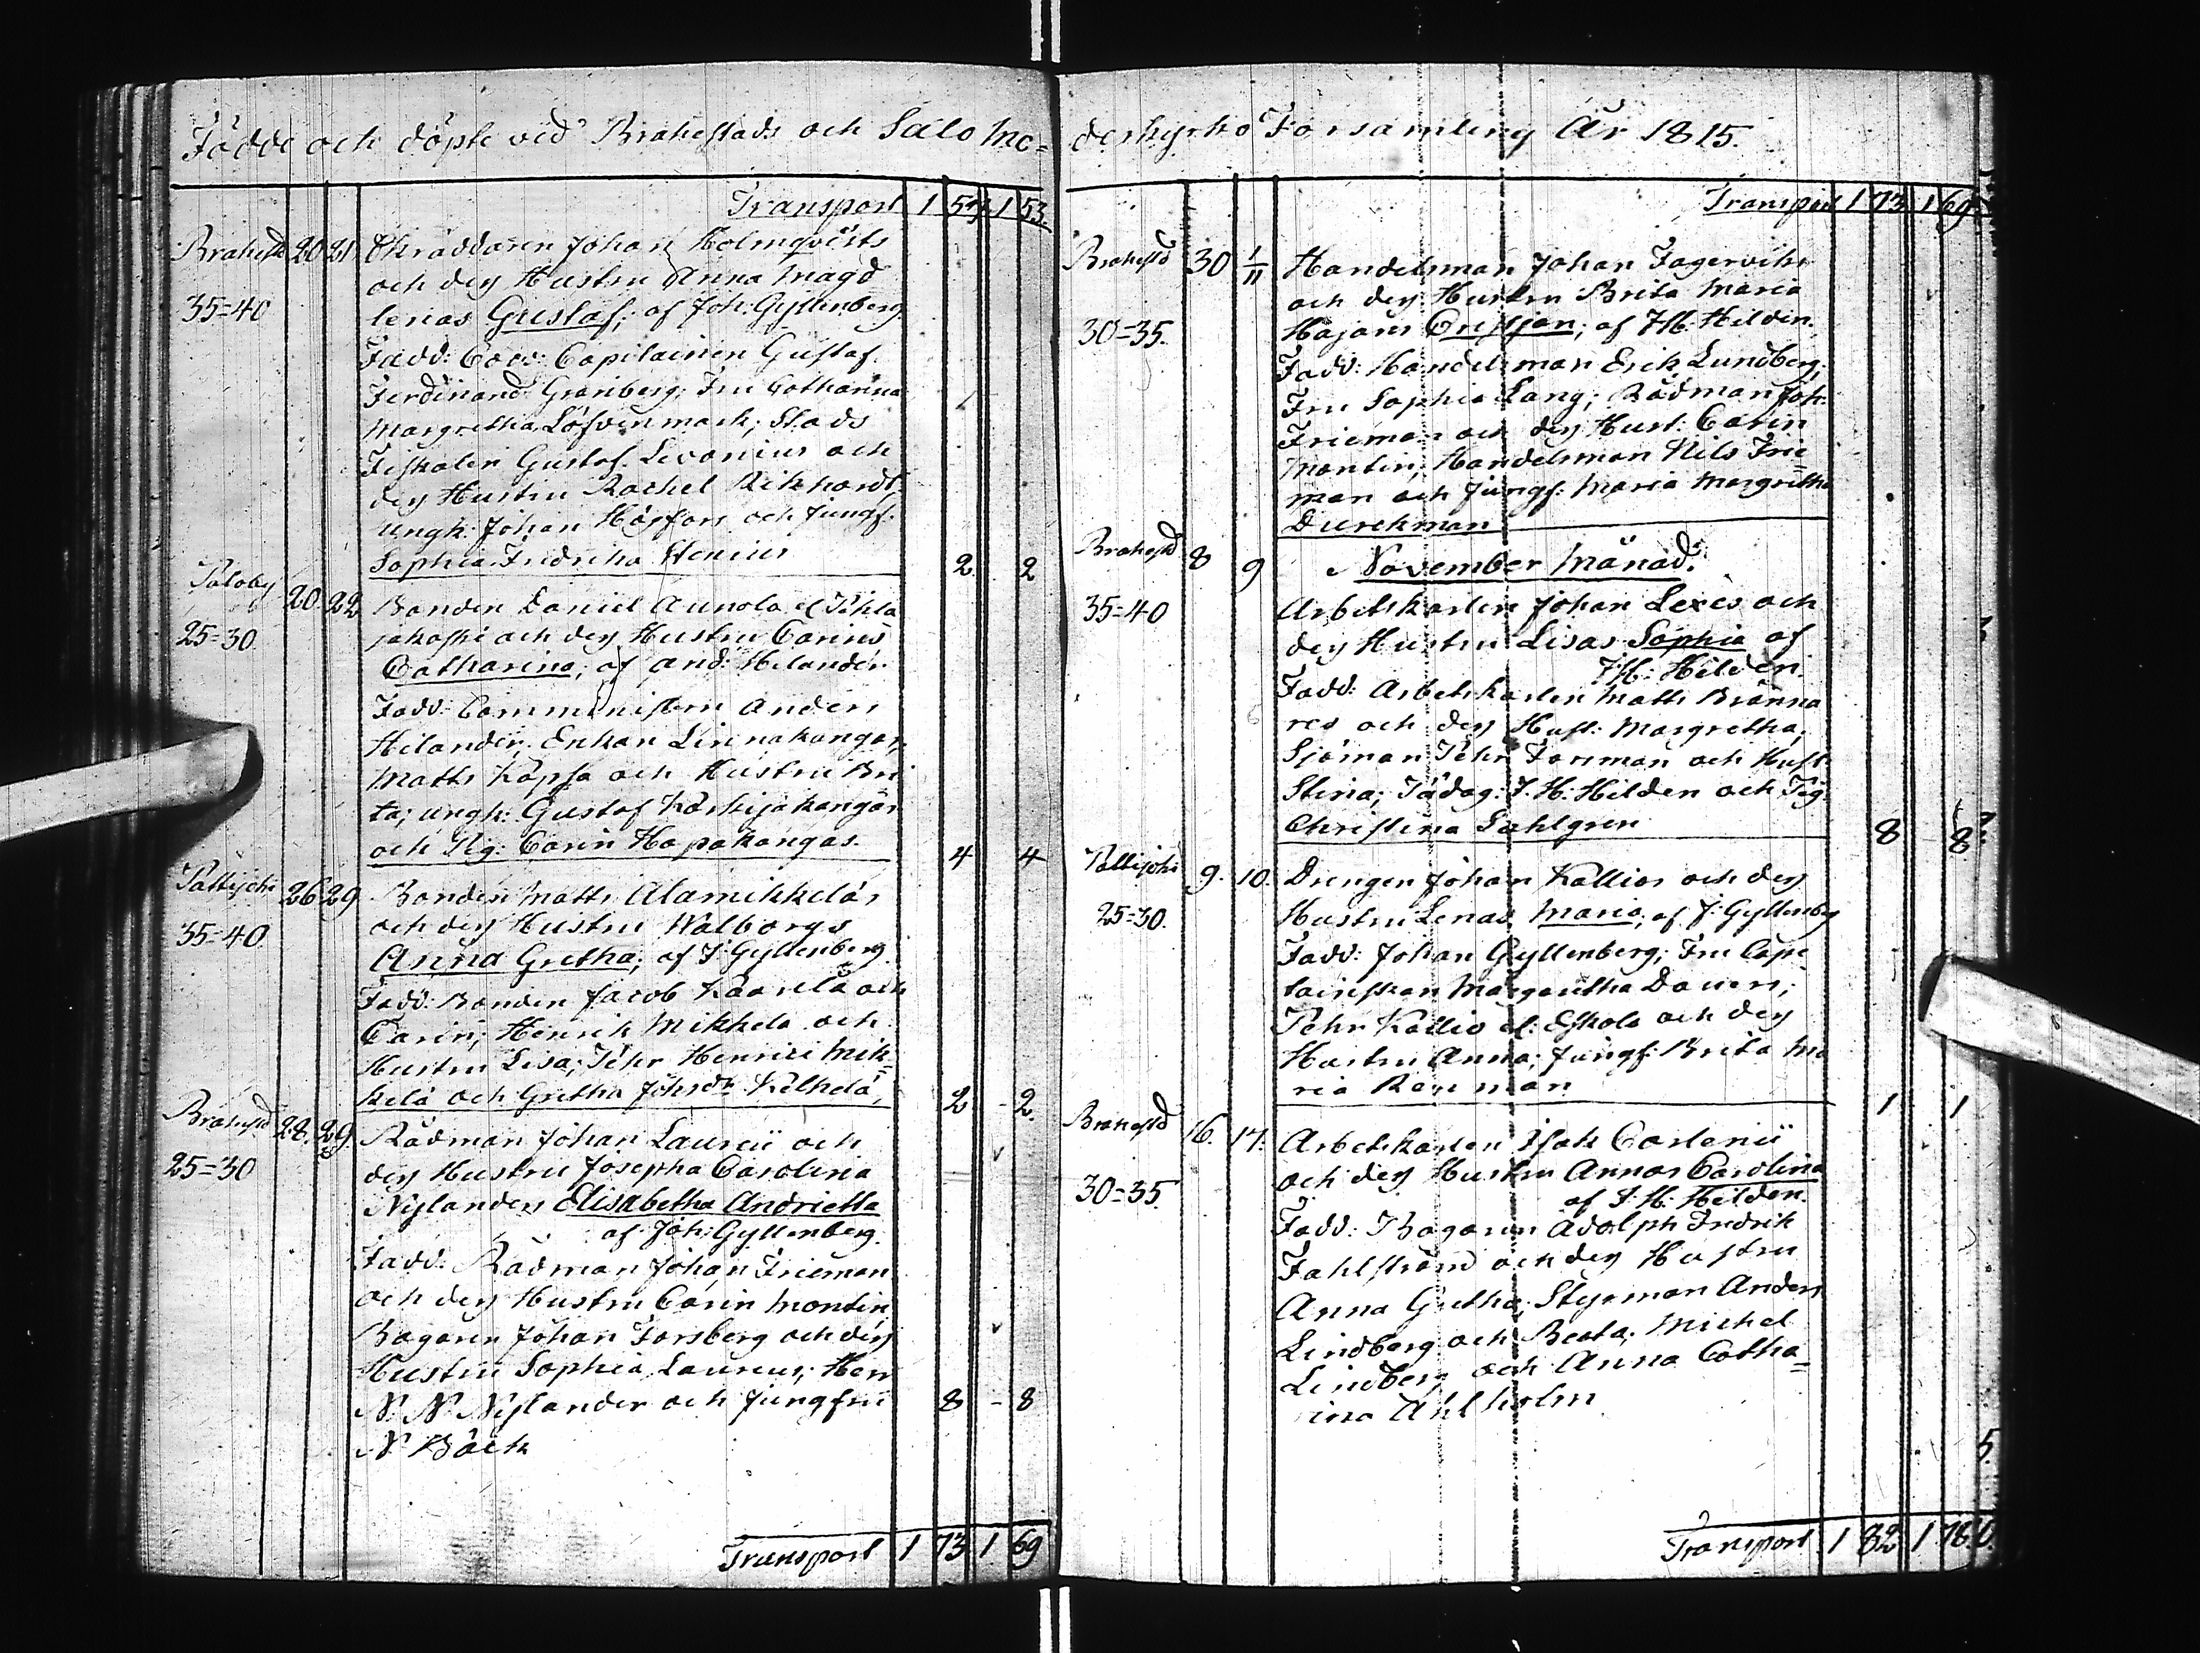 Födde och döpte vid Brahestads och Salo Mo=
Transport 1 57 1 53.
Brahestd 20 21 Skräddaren Johan Holmqvists
och dess Hustru Anna Magd
35=40 lenas Gustaf; af Joh: Gyllenberg.
Fadd: Coov: Capitainen Gustaf
Ferdinand Granberg; Fru Catharina
Margretha Löfvenmark; Stads
Fiskalen Gustaf Levonius och
dess Hustru Rachel Rikhardt
ungk: Johan Högfors och Jungf:
Sophia Fredrika Henius 2 2
Paloby 20. 22 Bonden Daniel Aunola el Pihla
25=30. jakoski och dess Hustru Carins
Catharina; af And: Helander
Fadd: Comministern Anders
Helander, Enkan Linnakangas,
Matts Kopsa och Hustru Bri
ta; ungk: Gustaf Koskijakangas
och Pig: Carin Hapakangas. 4 4
Pattijoki 26 29 Bonden Matts Alamikkelas
och dess Hustru Walborgs
35=40. Anna Gretha; af J: Gyllenberg.
Fadd: Bonden Jacob Kaarela och
Carin; Henrik Mikkela och
Hustru Lisa; Pehr Henrici Mik=
kelä och Gretha Johsdr Kilkelä, 2 - 2.
Brahestd 28. 29. Rådman Johan Laurii och
25=30 dess Hustru Josepha Carolina
Nylanders Elisabetha Andrietta
af Joh: Gyllenberg.
Fadd: Rådman Johan Frieman
och dess Hustru Carin Montin
Bagaren Johan Forsberg och dess
Hustru Sophia Laurus; Herr
N. N. Nylander och Jungfru 8 - 8
N Bäck
Transport 1 73 1 69
derkyrko Församling År 1815.
Transport 1 73 1 69
Brahestd 30 1/11 Handelsman Johan Fagerviks
och dess Hustru Brita Maria
30=35. Hajans Cristian; af J H: Hilden.
Fadd: Handelsman Erik Lundberg;
Fru Sophia Lang; Rådman Joh:
Frieman och dess Hust: Carin
Montin; Handelsman Nils Frie=
man och Jungf: Maria Margretha
Durchman
November Månad.
Brahestd 8 9
35=40 Arbetskarlen Johan Lexes och
dess Hustru Lisas Sophia af
J H: Hilden.
Fadd: Arbetskarlen Matts Bränna
res och dess Hust: Margretha;
Sjöman Pehr Forsman och Hust
Stina; Pädag: J. H: Hilden och Pig
Christina Sahlgren 8 8
Pattijoki 9. 10. Drengen Johan Kallios och dess
25=30. Hustru Lenas Maria; af J: Gyllenberg
Fadd: Johan Gyllenberg; Fru Capi
tainskan Margaretha Daner;
Pehr Kallio el: Eskola och dess
Hustru Anna; Jungf: Brita Ma
ria Renman 1 1
Brahestd 16. 17. Arbetskarlen Isak Carlenii
och dess Hustru Annas Carolina
30=35. af J: H: Hilden.
Fadd: Bagaren Adolph Fredrik
Fahlström och dess Hustru
Anna Gretha; Styrman Anders
Lindberg och Beata; Michel
Lindberg och Anna Catha=
rina Ahlholm
5.
Transport 1 82 1 78.